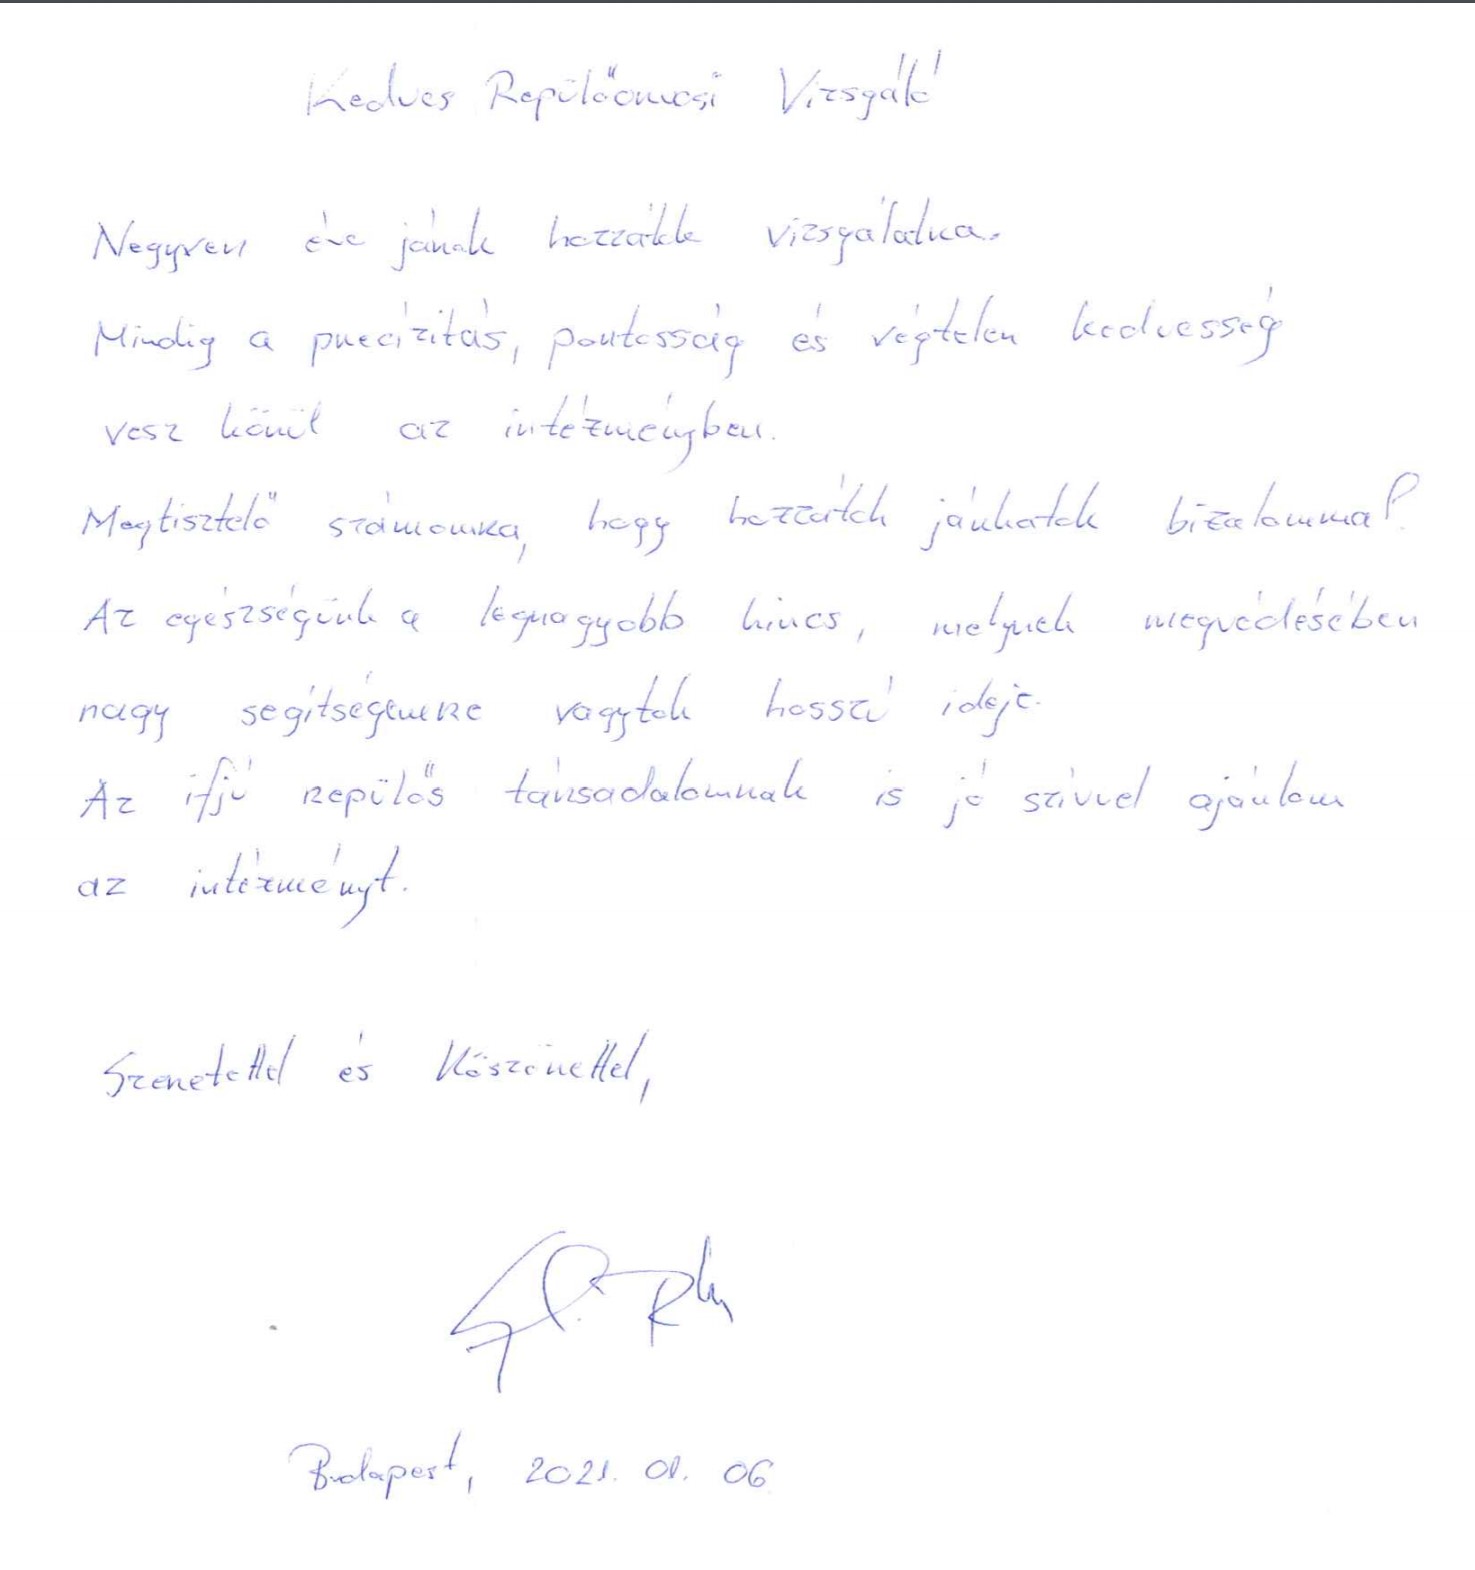 Kedves Repülőorvosi Vizsgáló
Negyven éve járok hozzátok vizsgálatra.
Mindig a precízitás, pontosság és végtelen kedvesség
vesz körül az intézményben.
Megtisztelő számomra, hogy hozzátok járhatok bizalommal.
Az egészségünk a legnagyobb kincs, melynek megvédésében
nagy segítségemre vagytok hosszú ideje.
Az ifjú repülős társadalomnak is jó szívvel ajánlom
az intézményt.
Szeretettel és Köszönettel,
Budapest, 2021. 01. 06